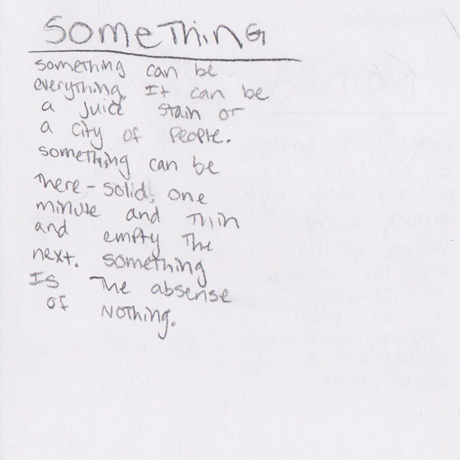 SOMETHING
something can be
everything. It can be
a juice stain or
a city of people.
something can be
there-solid, one
minute and thin
and empty the
next. something
Is the absense
of Nothing.